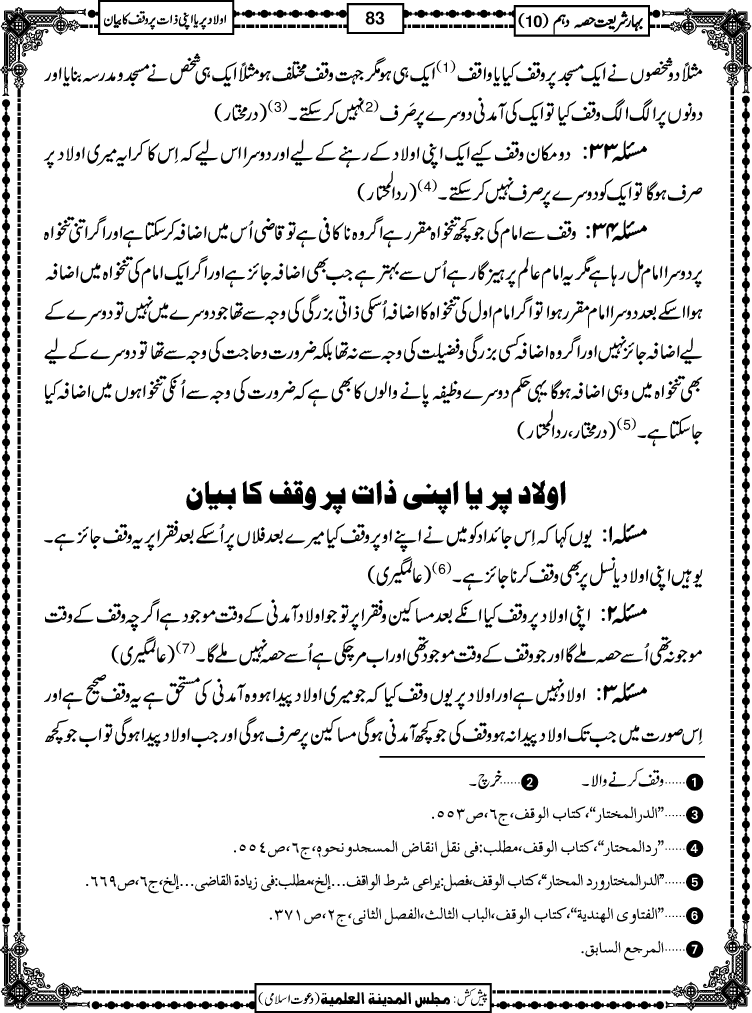 بہارشریعت حصہ دہم (10)
83
اولاد پر یا اپنی ذات پر وقف کا بیان
مثلاً دو شخصوں نے ایک مسجد پر وقف کیا یا واقف (1) ایک ہی ہو مگر جہت وقف مختلف ہو مثلاً ایک ہی شخص نے مسجد و مدرسہ بنایا اور
دونوں پر الگ الگ وقف کیا تو ایک کی آمدنی دوسرے پر صَرف (2) نہیں کر سکتے۔ (3) (درمختار)
مسئلہ ۳۳: دو مکان وقف کیے ایک اپنی اولاد کے رہنے کے لیے اور دوسرا اس لیے کہ اِس کا کرایہ میری اولاد پر
صرف ہوگا تو ایک کو دوسرے پر صرف نہیں کر سکتے۔ (4) (ردالمحتار)
مسئلہ ۳۴: وقف سے امام کی جو کچھ تنخواہ مقرر ہے اگر وہ ناکافی ہے تو قاضی اُس میں اضافہ کر سکتا ہے اور اگر اتنی تنخواہ
پر دوسرا امام مل رہا ہے مگر یہ امام عالم پرہیز گار ہے اُس سے بہتر ہے جب بھی اضافہ جائز ہے اور اگر ایک امام کی تنخواہ میں اضافہ
ہوا اسکے بعد دوسرا امام مقرر ہوا تو اگر امام اول کی تنخواہ کا اضافہ اُسکی ذاتی بزرگی کی وجہ سے تھا جو دوسرے میں نہیں تو دوسرے کے
لیے اضافہ جائز نہیں اور اگر وہ اضافہ کسی بزرگی و فضیلت کی وجہ سے نہ تھا بلکہ ضرورت و حاجت کی وجہ سے تھا تو دوسرے کے لیے
بھی تنخواہ میں وہی اضافہ ہوگا یہی حکم دوسرے وظیفہ پانے والوں کا بھی ہے کہ ضرورت کی وجہ سے اُنکی تنخواہوں میں اضافہ کیا
جا سکتا ہے۔ (5) (درمختار، ردالمحتار)
اولاد پر یا اپنی ذات پر وقف کا بیان
مسئلہ ۱: یوں کہا کہ اِس جائداد کو میں نے اپنے اوپر وقف کیا میرے بعد فلاں پر اُسکے بعد فقرا پر یہ وقف جائز ہے۔
یوہیں اپنی اولاد یا نسل پر بھی وقف کرنا جائز ہے۔ (6) (عالمگیری)
مسئلہ ۲: اپنی اولاد پر وقف کیا انکے بعد مساکین و فقرا پر تو جو اولاد آمدنی کے وقت موجود ہے اگرچہ وقف کے وقت
موجود نہ تھی اُسے حصہ ملے گا اور جو وقف کے وقت موجود تھی اور اب مرچکی ہے اُسے حصہ نہیں ملے گا۔ (7) (عالمگیری)
مسئلہ ۳: اولاد نہیں ہے اور اولاد پر یوں وقف کیا کہ جو میری اولاد پیدا ہو وہ آمدنی کی مستحق ہے یہ وقف صحیح ہے اور
اِس صورت میں جب تک اولاد پیدا نہ ہو وقف کی جو کچھ آمدنی ہوگی مساکین پر صرف ہوگی اور جب اولاد پیدا ہوگی تو اب جو کچھ
1 ......وقف کرنے والا۔ 2 ......خرچ۔
3 ......”الدرالمختار“، کتاب الوقف، ج٦، ص٥٥٣.
4 ......”ردالمحتار“، کتاب الوقف، مطلب: فی نقل انقاض المسجد ونحوه، ج٦، ص٥٥٤.
5 ......”الدرالمختار ورد المحتار“، کتاب الوقف، فصل: یراعی شرط الواقف...إلخ، مطلب: فی زیادة القاضی...إلخ، ج٦، ص٦٦٩.
6 ......”الفتاوی الهندیة“، کتاب الوقف، الباب الثالث، الفصل الثانی، ج٢، ص٣٧١.
7 ......المرجع السابق.
پیش کش: مجلس المدینة العلمیة (دعوت اسلامی)